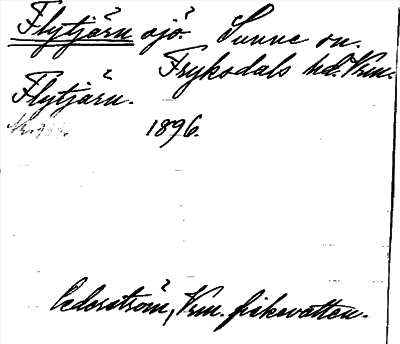 Flytjärn sjö. Sunne sn.
Fryksdals hd. Vrm.
Flytjärn.
1896.
Cederström, Vrm. fiskevatten.